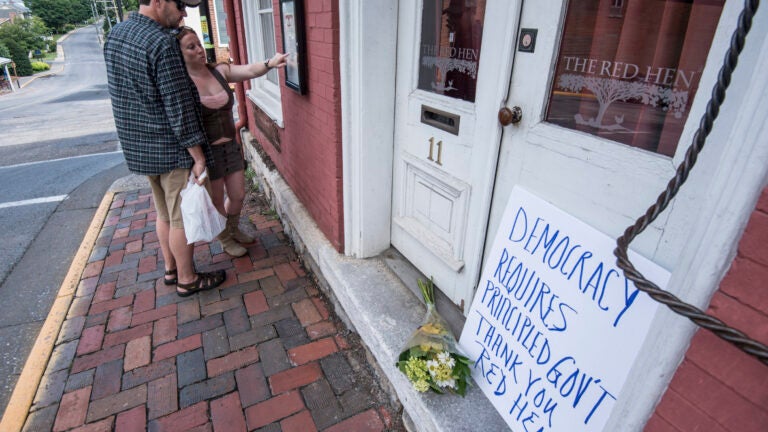 THE RED HEN
THE RED HEN
11
DEMOCRACY
REQUIRES
PRINCIPLED GOV'T
THANK YOU
RED HEN